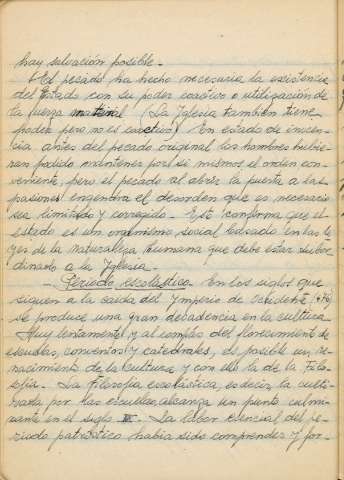 hay salvación posible.-
El pecado ha hecho necesaria la existencia
del Estado con su poder coactivo o utilización de
la fuerza material (La Iglesia también tiene
poder pero no es coactivo) En estado de inocen-
cia antes del pecado original los hombres hubie-
ran podido mantener por sí mismos el orden con-
veniente, pero el pecado al abrir la puerta a las
pasiones engendra el desorden que es necesario
sea limitado y corregido. Esto confirma que el
estado es un organismo social basado en las le-
yes de la naturaleza humana que debe estar subor-
dinado a la Iglesia.-
- Período escolástico.- En los siglos que
siguen a la caída del Imperio de Occidente (476)
se produce una gran decadencia en la cultura.
Muy lentamente y al compás del florecimiento de
escuelas, conventos y catedrales, es posible un re-
nacimiento de la cultura y con ello la de la Filo-
sofía. La filosofía escolástica, es decir la culti-
vada por las escuelas, alcanza un punto culmi-
nante en el siglo La labor esencial del pe-
ríodo patrístico había sido comprender y for-